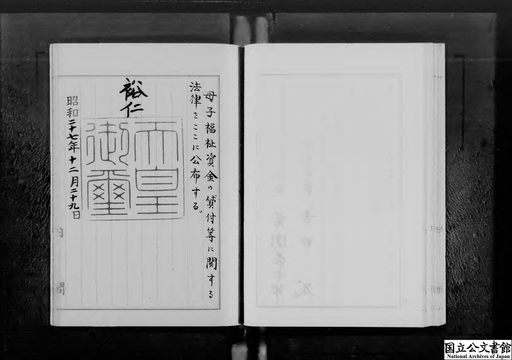 母子福祉資金の貸付等に関する
法律をここに公布する。
裕仁
天皇
御璽
昭和二十七年十二月二十九日
国立公文書館
National Archives of Japan